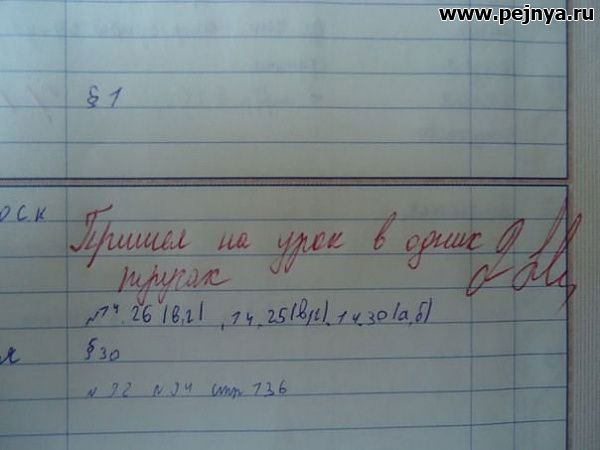 www.pejnya.ru
§ 1
оск
Пришел на урок в одних
трусах
№14.26(в,г), 14.25(в,г), 14.30(а,б)
§30
№ 92 № 94 стр 136